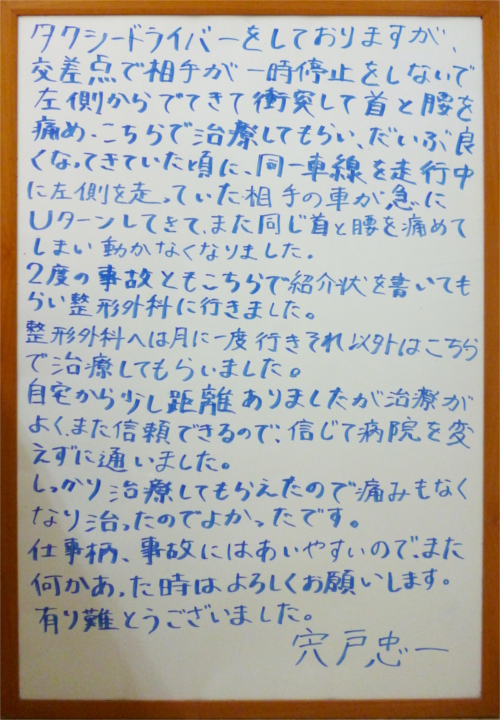 タクシードライバーをしておりますが、
交差点で相手が一時停止をしないで
左側からでてきて衝突して首と腰を
痛め、こちらで治療してもらい、だいぶ良
くなってきていた頃に、同一車線を走行中
に左側を走っていた相手の車が急に
Uターンしてきて、また同じ首と腰を痛めて
しまい動かなくなりました。
2度の事故ともこちらで紹介状を書いても
らい整形外科に行きました。
整形外科へは月に一度行きそれ以外はこちら
で治療してもらいました。
自宅から少し距離ありましたが治療が
よく、また信頼できるので、信じて病院を変
えずに通いました。
しっかり治療してもらえたので痛みもなく
なり治ったのでよかったです。
仕事柄、事故にはあいやすいので、また
何かあった時はよろしくお願いします。
有り難とうございました。
宍戸忠一